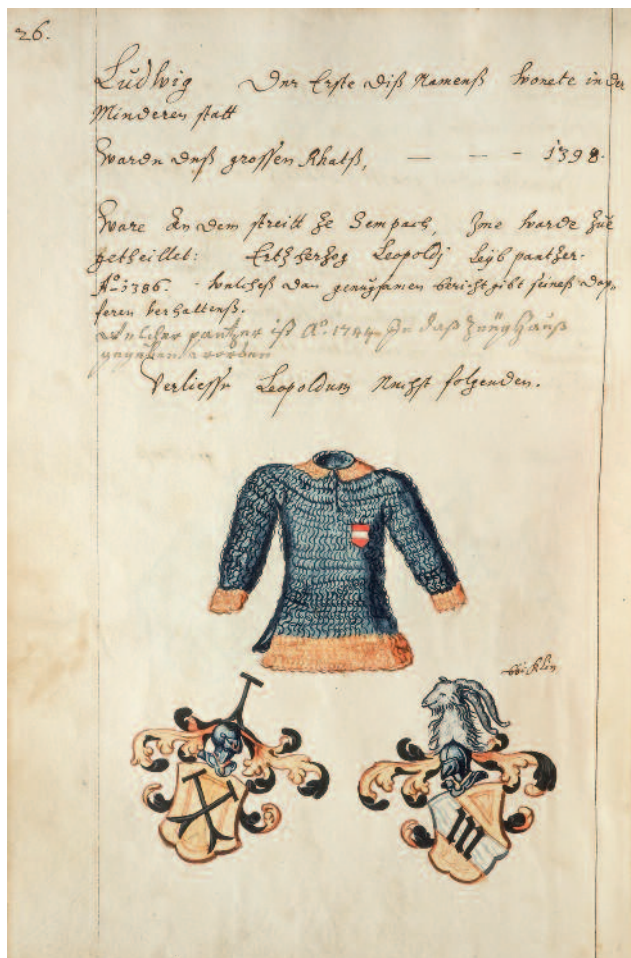 26.
Ludwig Der Erste diß Namenß wonete in der
Minderen statt
Warde deß grossen Rhatß, — — - 1398.
Ware an dem streitt ze Sempach, Ime warde zue
getheillet: Ertzherzog Leopoldj Leyb pantzer.
Aº 1386. welcheß dan genugsamen bericht gibt seineß dap-
feren verhaltenß.
welcher pantzer ist Aº. 1744 In daß Zeüghauß
gegeben worden
Verliesse Leopoldum Nechst folgenden.